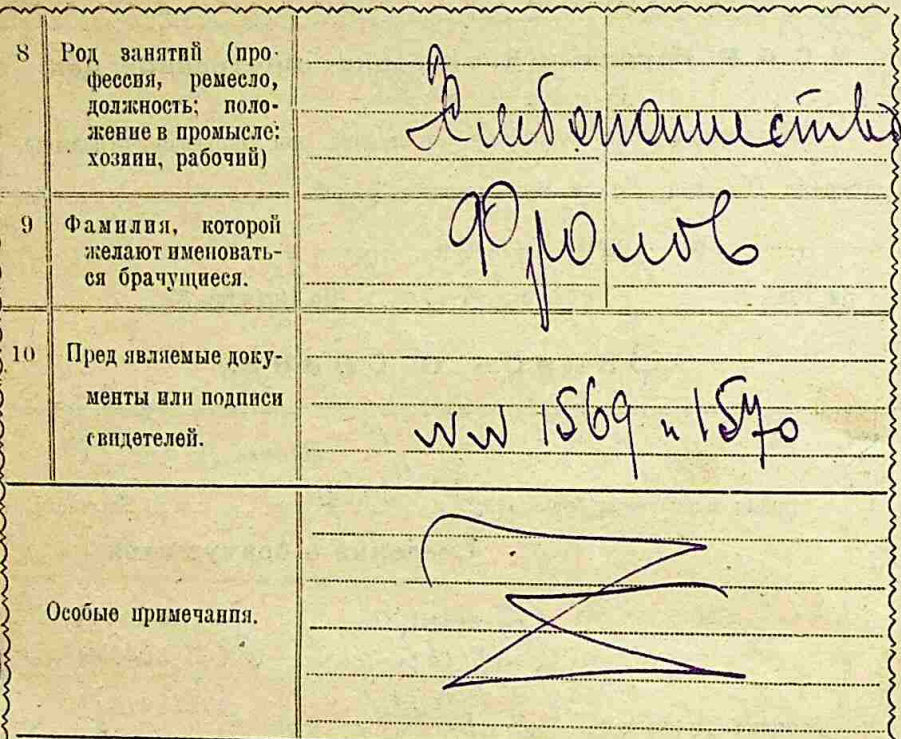 8 Род занятий (про-
фессия, ремесло,
должность; поло-
жение в промысле:
хозяин, рабочий)
Хлебопашество
9 Фамилия, которой
желают именовать-
ся брачущиеся.
Фролов
10 Пред являемые доку-
менты или подписи
свидетелей.
NN 1569 и 1570
Особые примечания.